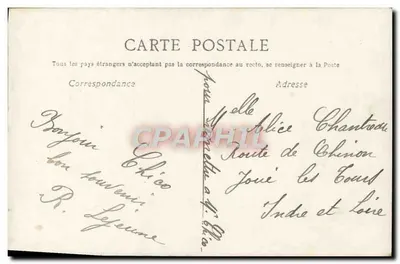 CARTE POSTALE
Tous les pays étrangers n'acceptent pas la correspondance au recto, se renseigner à la Poste
Correspondance
Adresse
Bonjour Chico
bon souvenir
R. Lejeune
pour remettre à M. Chico
Melle Alice Chantreau
Route de Chinon
Joué les Tours
Indre et Loire
CPARAMA.COM